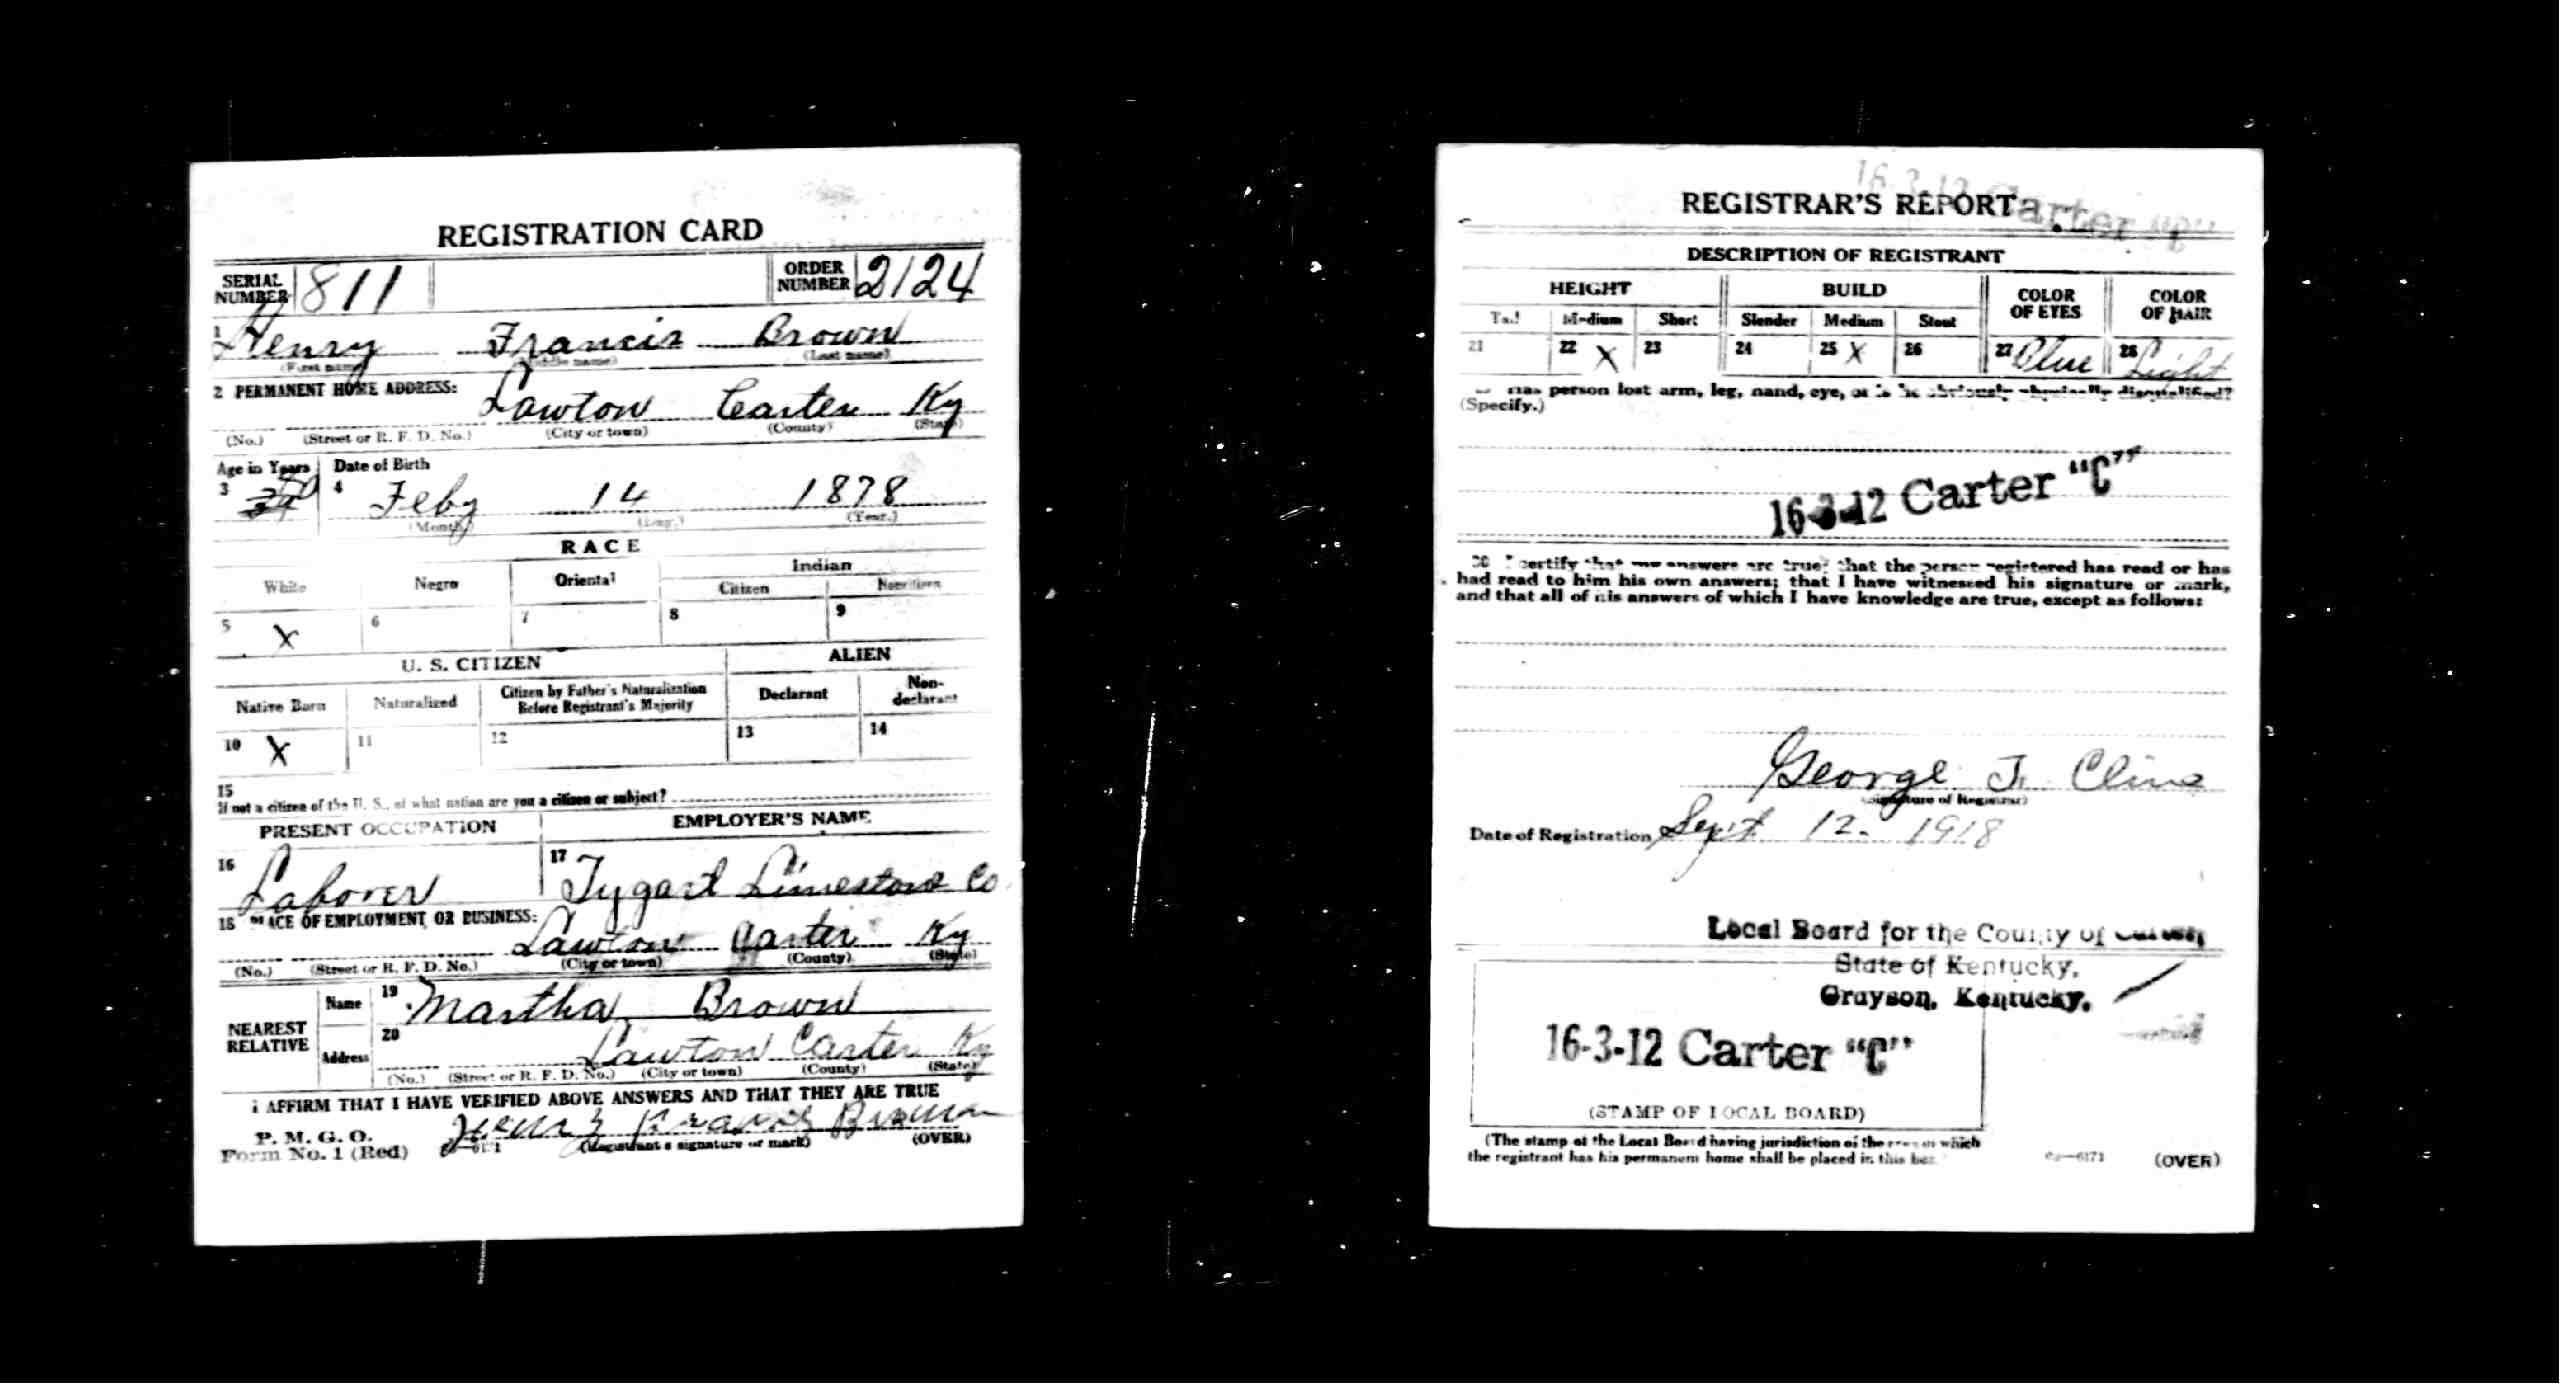 REGISTRATION CARD
SERIAL NUMBER 811 ORDER NUMBER 2124
1 Henry Francis Brown
(First name) (Middle name) (Last name)
2 PERMANENT HOME ADDRESS: Lawton Carter Ky
(No.) (Street or R. F. D. No.) (City or town) (County) (State)
Age in Years Date of Birth
3 40 4 Feby 14 1878
(Month.) (Day.) (Year.)
RACE
White Negro Oriental Indian
Citizen Noncitizen
5 X 6 7 8 9
U. S. CITIZEN ALIEN
Native Born Naturalized Citizen by Father's Naturalization Before Registrant's Majority Declarant Non-declarant
10 X 11 12 13 14
15
If not a citizen of the U. S., of what nation are you a citizen or subject?
PRESENT OCCUPATION EMPLOYER'S NAME
16 Laborer 17 Tygart Limestone Co
18 PLACE OF EMPLOYMENT OR BUSINESS: Lawton Carter Ky
(No.) (Street or R. F. D. No.) (City or town) (County) (State)
NEAREST RELATIVE Name 19 Martha Brown
Address 20 Lawton Carter Ky
(No.) (Street or R. F. D. No.) (City or town) (County) (State)
I AFFIRM THAT I HAVE VERIFIED ABOVE ANSWERS AND THAT THEY ARE TRUE
P. M. G. O.
Form No. 1 (Red) Henry Francis Brown
(Registrant's signature or mark) (OVER)
16-3-12 Carter
REGISTRAR'S REPORT
DESCRIPTION OF REGISTRANT
HEIGHT BUILD COLOR OF EYES COLOR OF HAIR
Tall Medium Short Slender Medium Stout
21 22 X 23 24 25 X 26 27 Blue 28 Light
Has person lost arm, leg, hand, eye, or is he obviously physically disqualified?
(Specify.)
16-3-12 Carter "C"
30 I certify that my answers are true; that the person registered has read or has
had read to him his own answers; that I have witnessed his signature or mark,
and that all of his answers of which I have knowledge are true, except as follows:
George T. Cline
(Signature of Registrar)
Date of Registration Sept 12. 1918
Local Board for the County of Carter,
State of Kentucky,
Grayson, Kentucky.
16-3-12 Carter "C"
(STAMP OF LOCAL BOARD)
(The stamp of the Local Board having jurisdiction of the area in which
the registrant has his permanent home shall be placed in this box.
03—6171 (OVER)